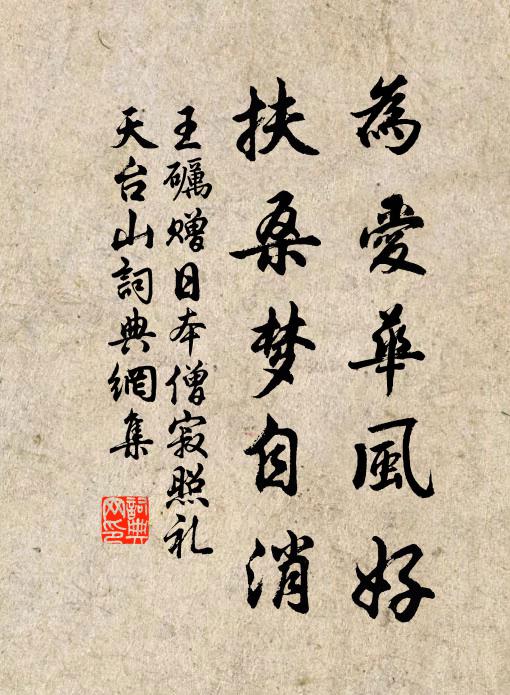 為愛華風好
扶桑梦自消
王礪赠日本僧寂照礼
天台山詞典網集
詞典网印